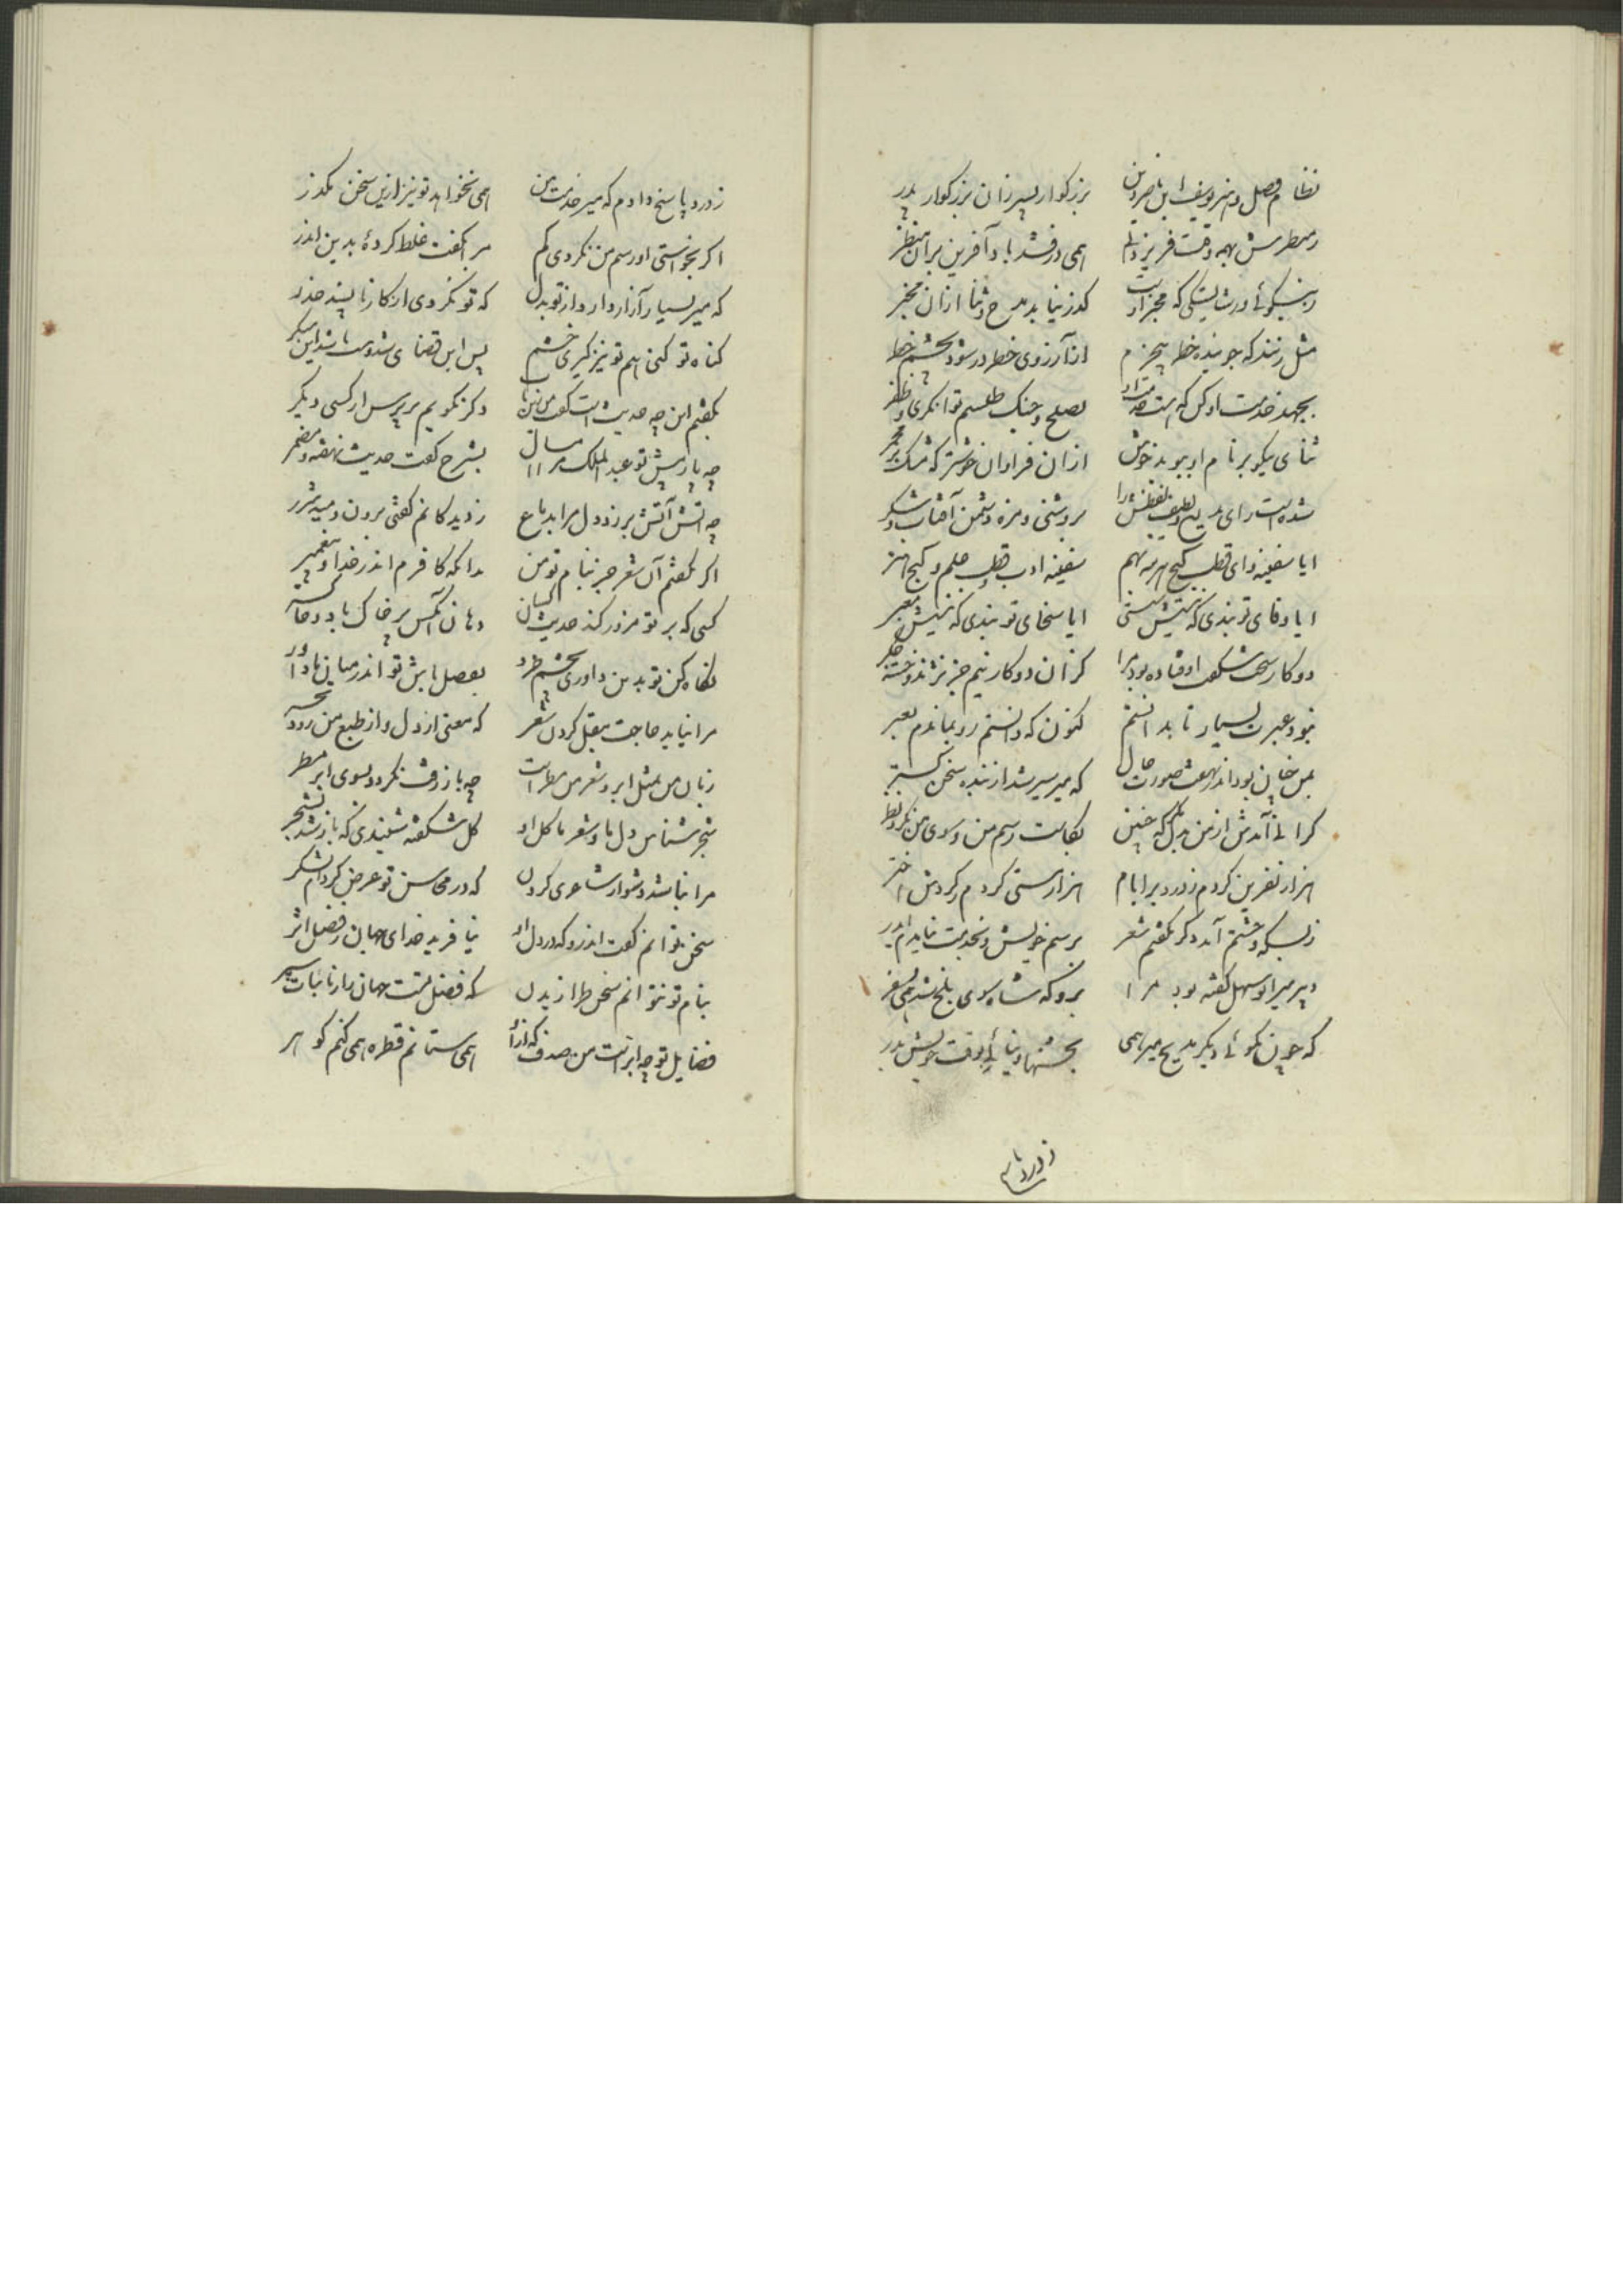 نظام فضل و هنر یوسف ابن ناصر دین بزرکوار پسر زان بزرکوار پدر
ز منظرش بهمه وقت فر یزدانی همی درفشد باد آفرین بران منظر
ز نیکوئی درستیش که مخبر اوست کذر نیابد مدح و ثنا ازان مخبر
مثل زنند که جوینده خطر بیحزم از آرزوی خطر در شود بچشم خطر
بجهد خدمت او کن که خدمت او بصلح و جنک طلسم توانکری و ظفر
ثنای نیکو بر نام او ببوید خوش ازان فراوان خوشتر که مشک بر مجمر
شده است رای بدیع و لطیف لفظش را بروشنی و مزه دشمن آفتاب و شکر
ایا سفینه و ای قطب کنج هر سه بهم سفینه ادب و قطب حلم و کنج هنر
ایا وفای تو بندی که نیستش سستی ایا سخای تو بندی که نیستش معبر
دو کار سخت شکفت اوفتاده بود مرا کزان دو کار نیم جز نژند و خسته جکر
نبود عبرت بسیار تا بدانستم کنون که دانستم زو بماندم بعبر
بمن چنان بود اندر نهفت صورت حال که میر سیر شد از بنده سخن کستر
کرانی آمدش از من بدل که چنین بکاست رسم من و سوی من نکرد نظر
هزار نفرین کردم ز درد بر ایام هزار سستی کردم ز کردش اختر
ز بسکه خشم آمد دکر نکفتم شعر برسم خویش و بخدمت نیامدم ایدر
دبیر میر ابو سهل کفته بود مرا بدو که شاه سوی بلخ شد همی بسفر
که چون نکوئی دیکر مدیح میر همی بجشنها و نیائی بوقت خویش بدر
ز درد پاسخ
ز درد پاسخ دادم که میر خدمت من همی نخواهد تو نیز ازین سخن بکذر
اکر بخواستی او رسم من نکردی کم مرا بکفت غلط کرده بدین اندر
که میر بسیار آزار دارد از تو بدل که تو نکردی از کار ناپسند حذر
کناه تو کنی و هم تو نیز کیری خشم پس این قضای سدوم باشد این منکر
بکفتم این چه حدیثست کفت من نه دکر نکویم بر پرس از کسی دیکر
چو باز پیش تو عبدالملک مرا امسال بشرح کفت حدیث نهفته و مضمر
چو آتش آتش بر زد دل مرا بدماغ ز دیدکانم کفتی برون دمید شرر
اکر بکفتم آن شعر جز بنام تو من بدانکه کافرم اندر خدا و پیغمبر
کسی که بر تو مزور کند حدیث کسان دهان آنکس پر خاک باد و خاکستر
نکاه کن تو بدین داوری بچشم خرد بفضل باش تو اندر میان ما داور
مرا نیاید حاجت بنقل کردن شعر که معنی از دل و از طبع من رود
زبان من بمثل ابر و شعر من مطر است چو باز رفت نکردد بسوی ابر مطر
شجر شناس دل ما و شعر ما کل او کل شکفته شنیدی که باز شد بشجر
مرا نباشد دشوار شاعری کردن که در محاسن تو عرض کرده ام لشکر
سخن توانم کفت اندر و که در دل او نیافرید خدای جهان ز فضل اثر
بنام تو نتوانم سخن طرازیدن که فضل تست جهان را ز نایبات سپر
فضایل تو چو ابر است من صدف که ازو همی ستانم قطره همی کنم کوهر